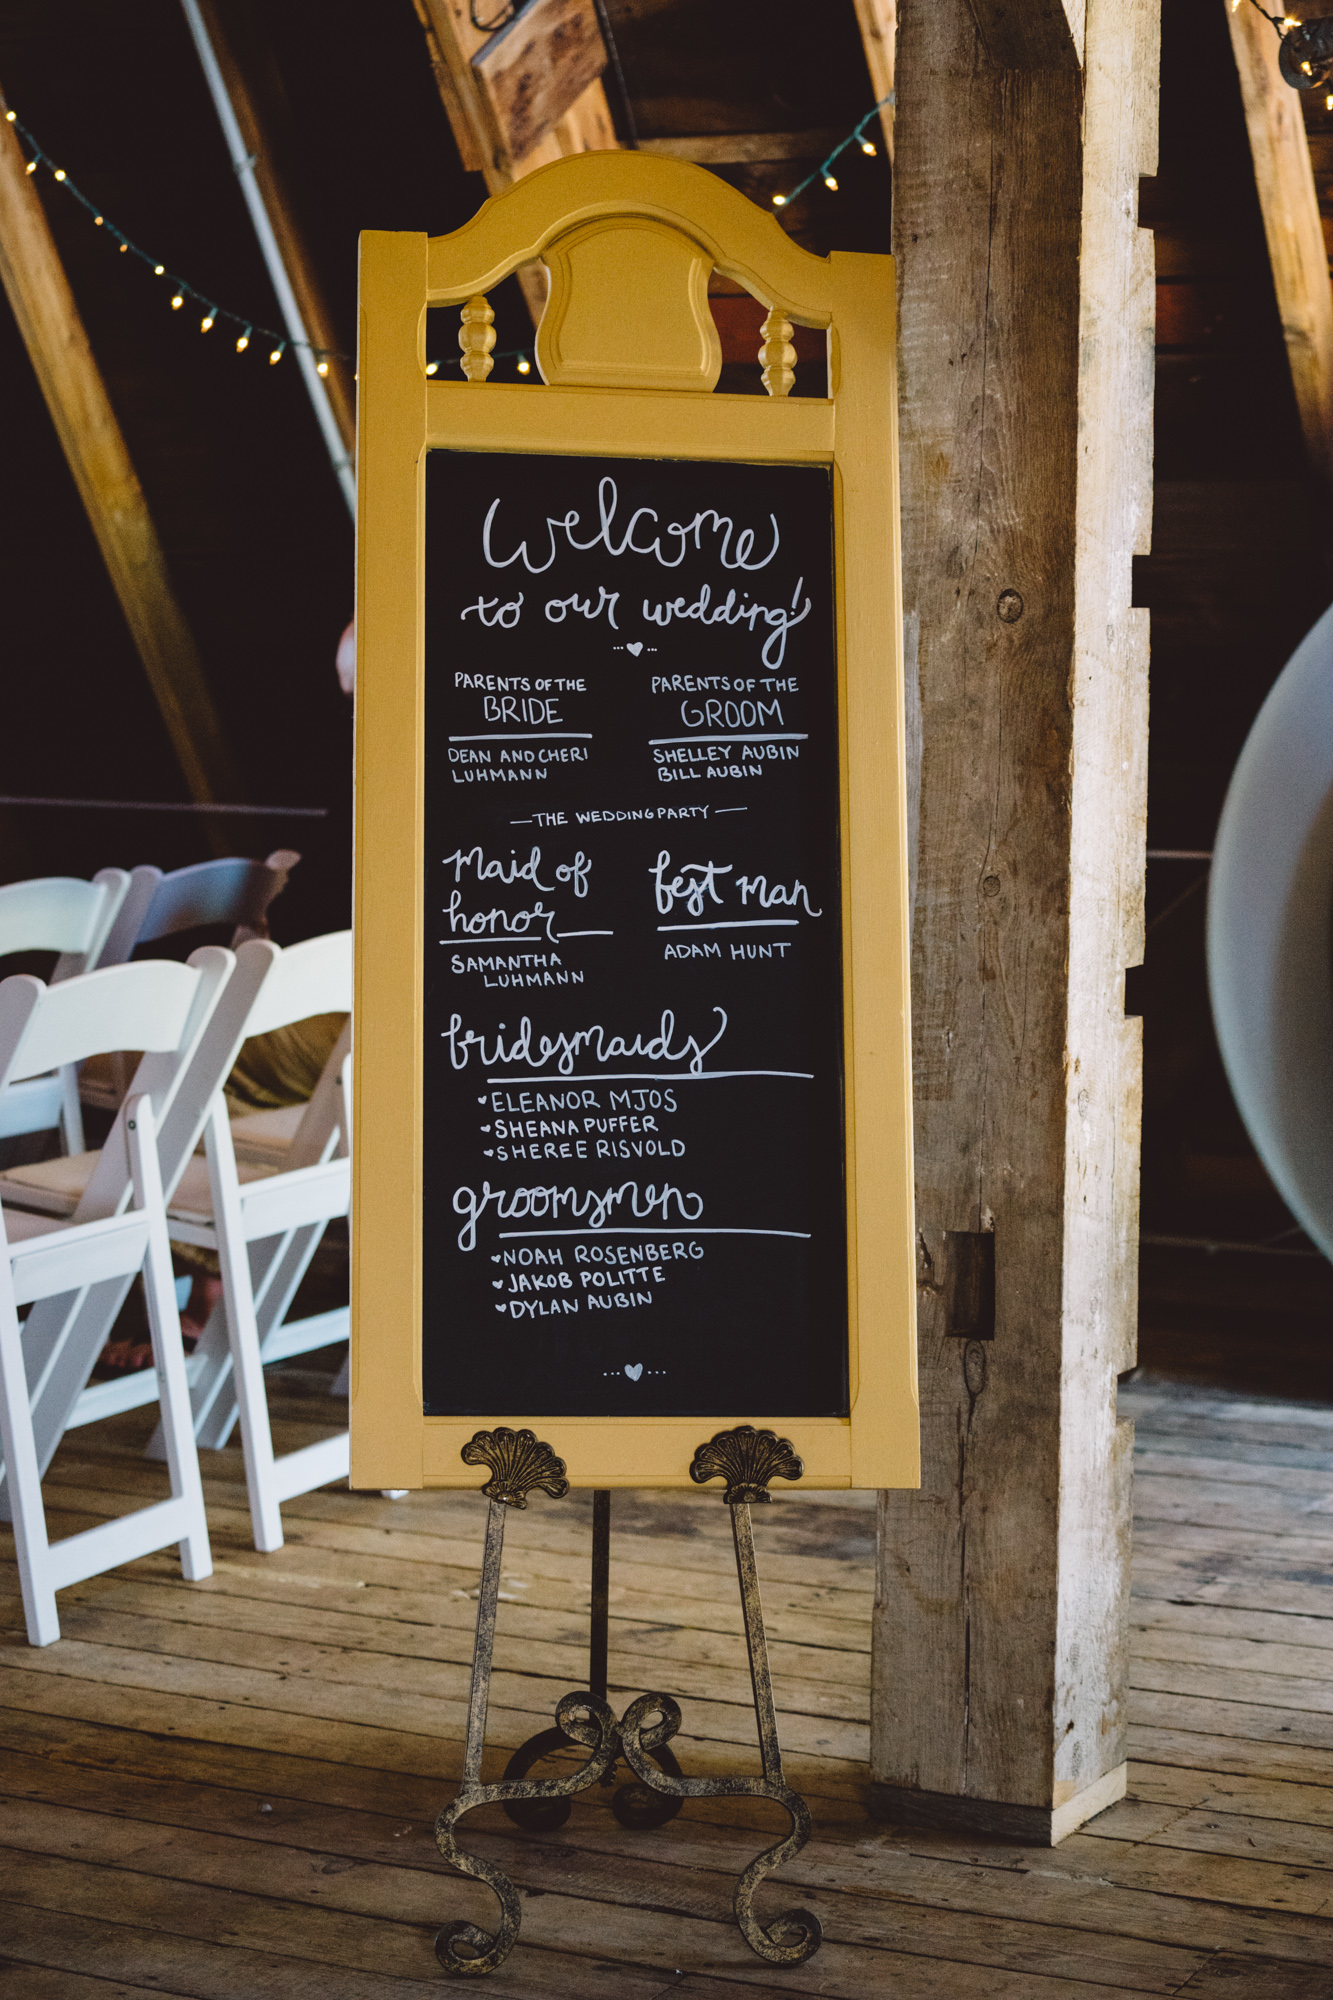 Welcome
to our wedding!
PARENTS OF THE
BRIDE
DEAN AND CHERI
LUHMANN
PARENTS OF THE
GROOM
SHELLEY AUBIN
BILL AUBIN
THE WEDDING PARTY
Maid of
honor
SAMANTHA
LUHMANN
best man
ADAM HUNT
bridesmaids
ELEANOR MJOS
SHEANA PUFFER
SHEREE RISVOLD
groomsmen
NOAH ROSENBERG
JAKOB POLITTE
DYLAN AUBIN